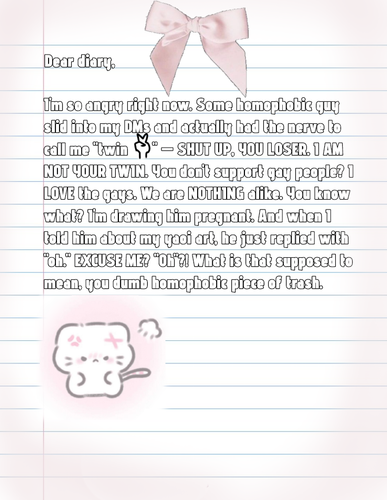 Dear diary,
I'm so angry right now. Some homophobic guy
slid into my DMs and actually had the nerve to
call me "twin ✌" — SHUT UP, YOU LOSER. I AM
NOT YOUR TWIN. You don't support gay people? I
LOVE the gays. We are NOTHING alike. You know
what? I'm drawing him pregnant. And when I
told him about my yaoi art, he just replied with
"oh." EXCUSE ME? "Oh"?! What is that supposed to
mean, you dumb homophobic piece of trash.